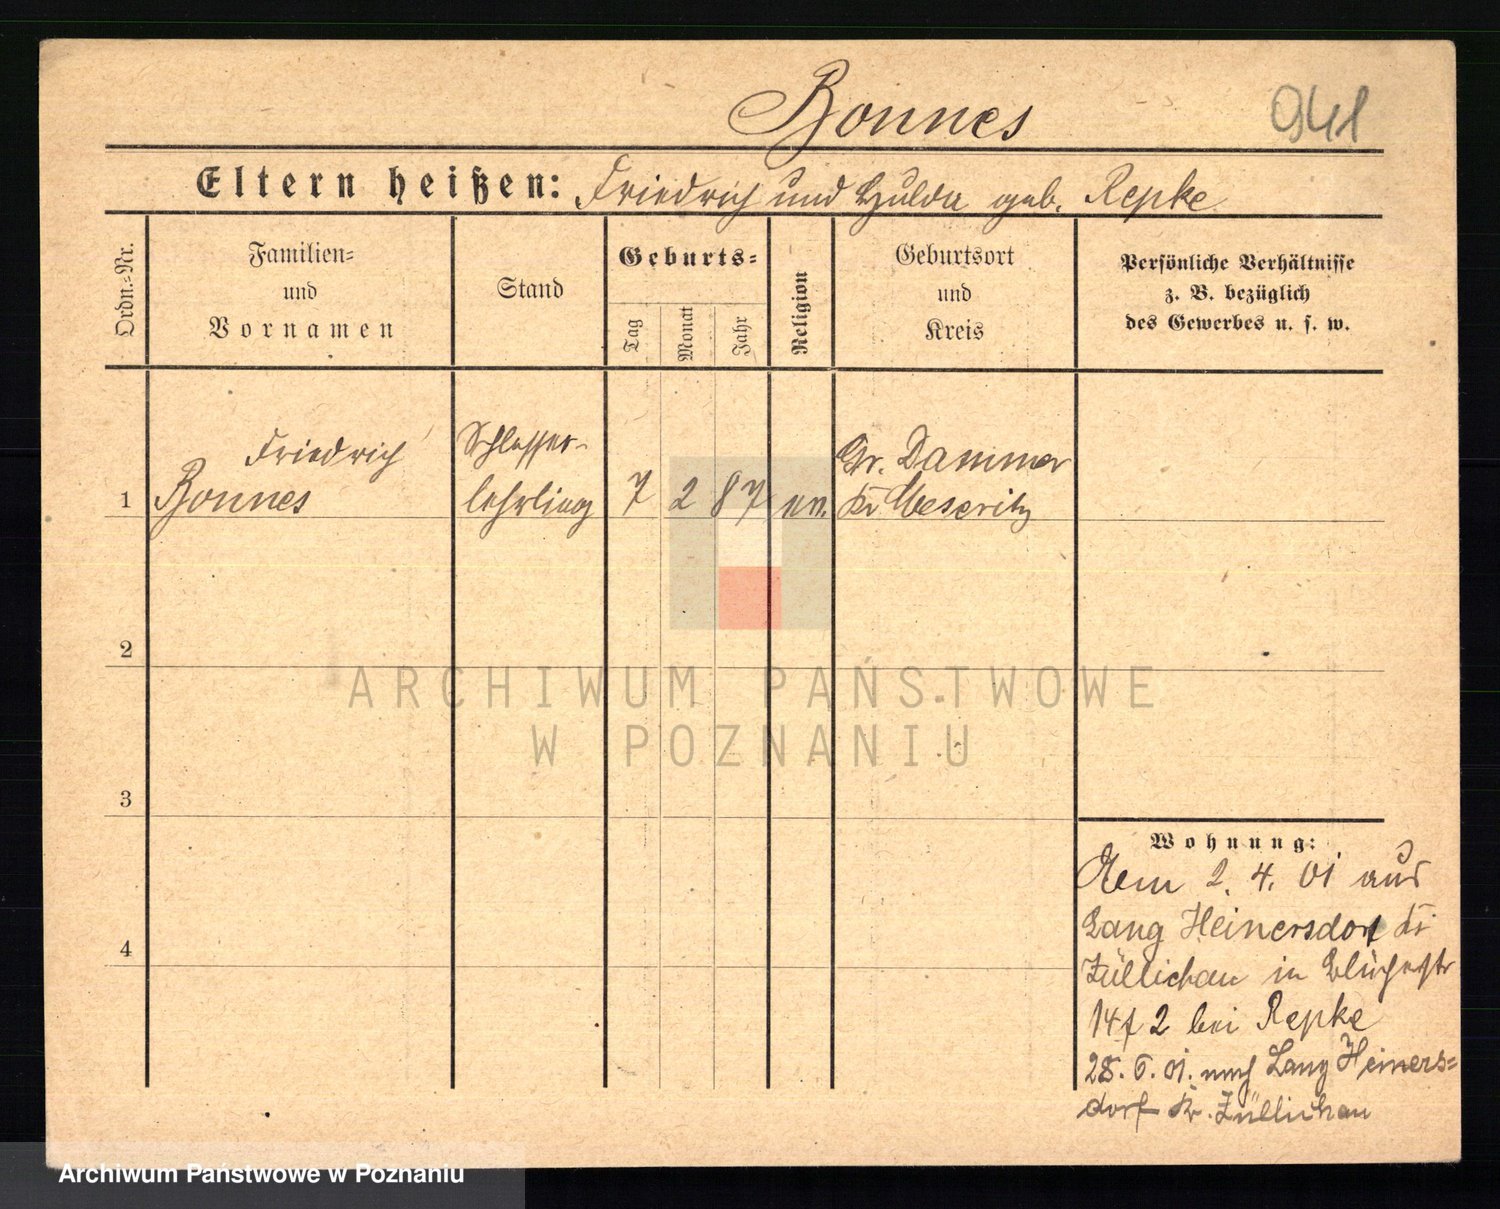 Bonnes
941
Eltern heißen: Friedrich und Hulda geb. Repke
Ordn.-Nr.
Familien-
und
Vornamen
Stand
Geburts-
Tag
Monat
Jahr
Religion
Geburtsort
und
Kreis
Persönliche Verhältnisse
z. B. bezüglich
des Gewerbes u. s. w.
1
Friedrich
Bonnes
Schlosser-
lehrling
7
2
87
ev.
Gr. Dammer
Kr Meseritz
2
3
4
Wohnung:
2. 4. 01 aus
Lang Heinersdorf Kr
Züllichau in
14 2 bei Repke
28. 6. 01. nach Lang Heiners-
dorf Kr. Züllichau
ARCHIWUM PAŃSTWOWE
W POZNANIU
Archiwum Państwowe w Poznaniu